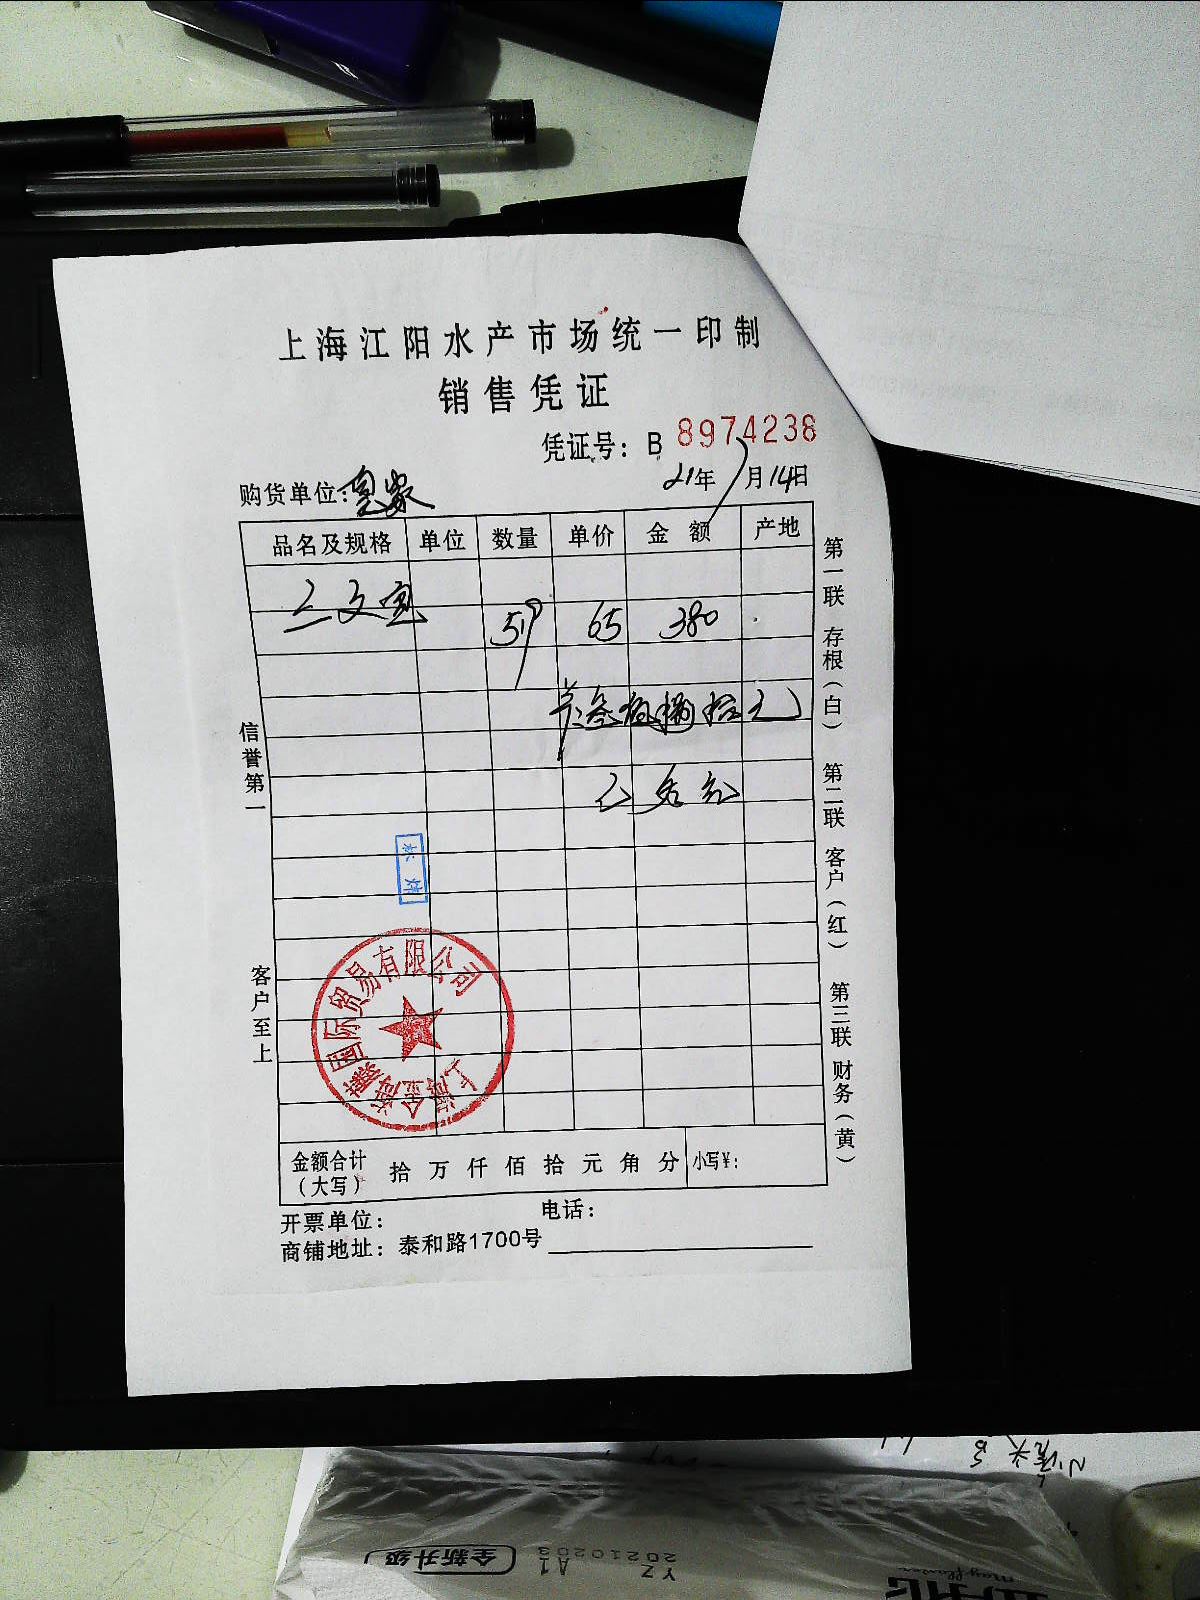 上海江阳水产市场统一印制
销售凭证
凭证号：B 8974238
购货单位：皇家 21年7月14日
品名及规格 单位 数量 单价 金额 产地
三文 59 65 380
叁佰捌拾元
已付
信誉第一
客户至上
第一联 存根（白） 第二联 客户（红） 第三联 财务（黄）
上海金海藤国际贸易有限公司
金额合计（大写） 拾 万 仟 佰 拾 元 角 分 小写¥：
开票单位： 电话：
商铺地址：泰和路1700号
全新升级
YZ A1
20210203